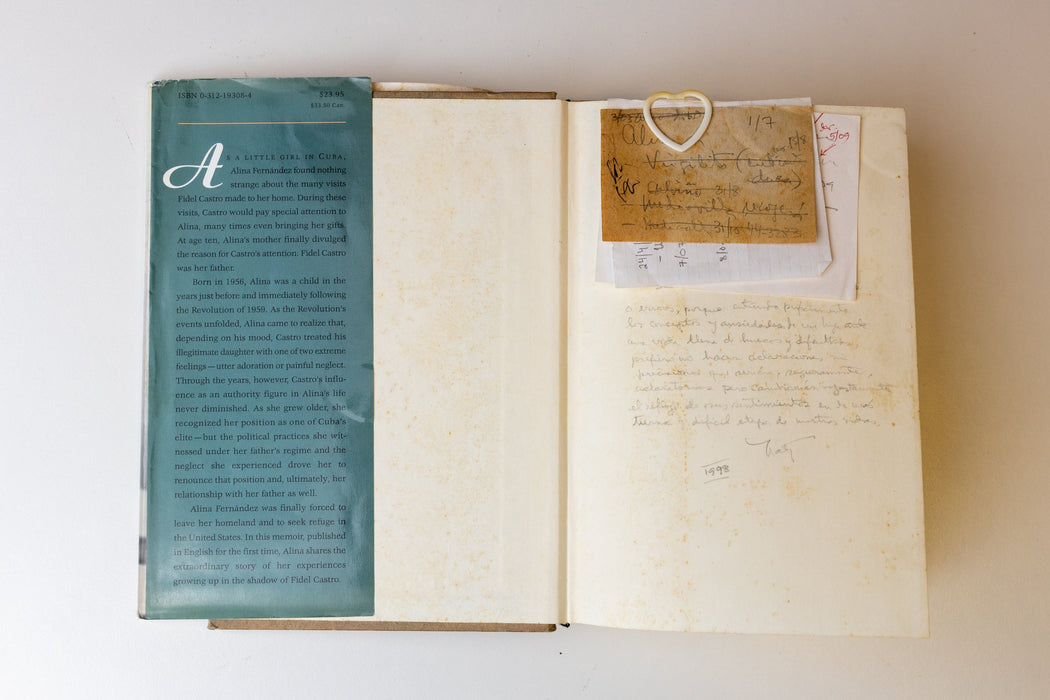 ISBN 0-312-19308-4 $23.95
$33.50 Can.
AS A LITTLE GIRL IN CUBA,
Alina Fernández found nothing
strange about the many visits
Fidel Castro made to her home. During these
visits, Castro would pay special attention to
Alina, many times even bringing her gifts.
At age ten, Alina's mother finally divulged
the reason for Castro's attention: Fidel Castro
was her father.
Born in 1956, Alina was a child in the
years just before and immediately following
the Revolution of 1959. As the Revolution's
events unfolded, Alina came to realize that,
depending on his mood, Castro treated his
illegitimate daughter with one of two extreme
feelings—utter adoration or painful neglect.
Through the years, however, Castro's influ-
ence as an authority figure in Alina's life
never diminished. As she grew older, she
recognized her position as one of Cuba's
elite—but the political practices she wit-
nessed under her father's regime and the
neglect she experienced drove her to
renounce that position and, ultimately, her
relationship with her father as well.
Alina Fernández was finally forced to
leave her homeland and to seek refuge in
the United States. In this memoir, published
in English for the first time, Alina shares the
extraordinary story of her experiences
growing up in the shadow of Fidel Castro.
1/7
15/8
Virgilito
3/8
recoger
31/10
5/09
7/07
porque
los conceptos y ansiedades de
una vida llena de huecos y
prefiero no hacer aclaraciones, ni
precisiones que serían, seguramente,
aclaratorias pero cambiarían injustamente
el reflejo de esos sentimientos en
tierna y difícil etapa de nuestras vidas.
1998